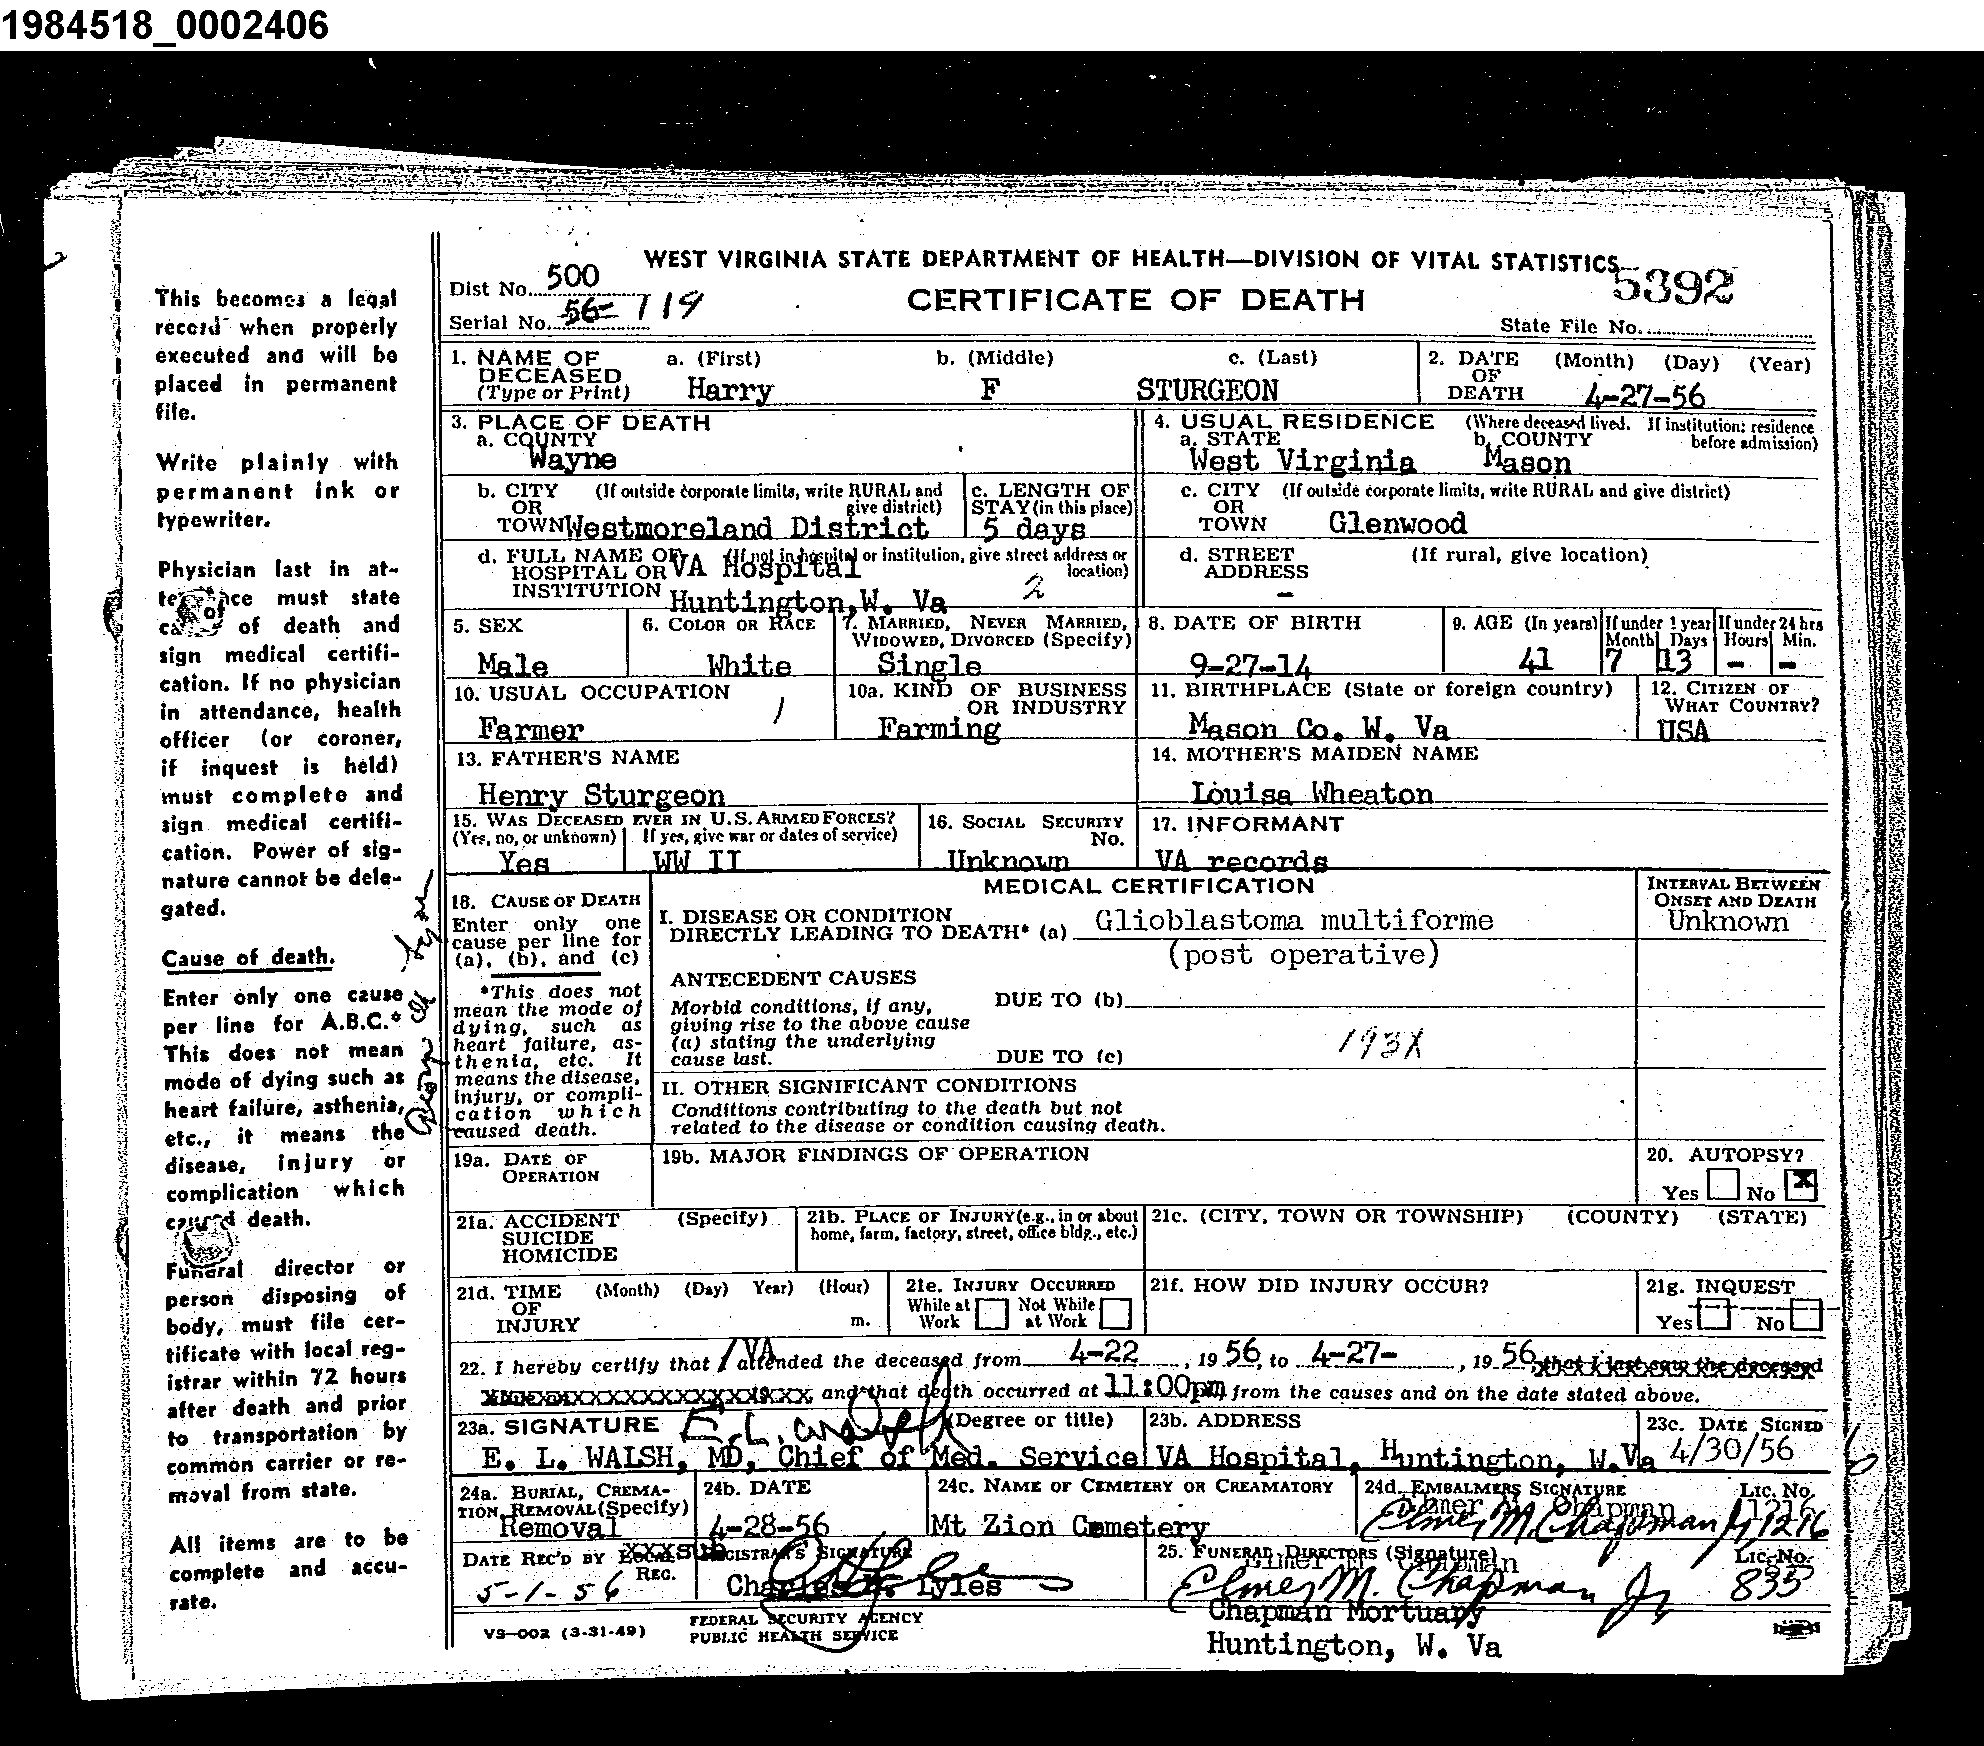 1984518_0002406
WEST VIRGINIA STATE DEPARTMENT OF HEALTH—DIVISION OF VITAL STATISTICS
CERTIFICATE OF DEATH
Dist No. 500
Serial No. 56- 719
State File No. 5392
This becomes a legal
record when properly
executed and will be
placed in permanent
file.
Write plainly with
permanent ink or
typewriter.
Physician last in at-
tendance must state
cause of death and
sign medical certifi-
cation. If no physician
in attendance, health
officer (or coroner,
if inquest is held)
must complete and
sign medical certifi-
cation. Power of sig-
nature cannot be dele-
gated.
Cause of death.
Enter only one cause
per line for A.B.C.*
This does not mean
mode of dying such as
heart failure, asthenia,
etc., it means the
disease, injury or
complication which
caused death.
Funeral director or
person disposing of
body, must file cer-
tificate with local reg-
istrar within 72 hours
after death and prior
to transportation by
common carrier or re-
moval from state.
All items are to be
complete and accu-
rate.
1. NAME OF DECEASED (Type or Print) a. (First) b. (Middle) c. (Last)
Harry F STURGEON
2. DATE OF DEATH (Month) (Day) (Year)
4-27-56
3. PLACE OF DEATH
a. COUNTY
Wayne
4. USUAL RESIDENCE (Where deceased lived. If institution: residence before admission)
a. STATE b. COUNTY
West Virginia Mason
b. CITY OR TOWN (If outside corporate limits, write RURAL and give district)
Westmoreland District
c. LENGTH OF STAY (in this place)
5 days
c. CITY OR TOWN (If outside corporate limits, write RURAL and give district)
Glenwood
d. FULL NAME OF HOSPITAL OR INSTITUTION (If not in hospital or institution, give street address or location)
VA Hospital
Huntington,W. Va 2
d. STREET ADDRESS (If rural, give location)
-
5. SEX
Male
6. COLOR OR RACE
White
7. MARRIED, NEVER MARRIED, WIDOWED, DIVORCED (Specify)
Single
8. DATE OF BIRTH
9-27-14
9. AGE (In years) If under 1 year If under 24 hrs
Month Days Hours Min.
41 7 13 - -
10. USUAL OCCUPATION
Farmer
10a. KIND OF BUSINESS OR INDUSTRY
Farming
11. BIRTHPLACE (State or foreign country)
Mason Co. W. Va
12. CITIZEN OF WHAT COUNTRY?
USA
13. FATHER'S NAME
Henry Sturgeon
14. MOTHER'S MAIDEN NAME
Louisa Wheaton
15. WAS DECEASED EVER IN U.S. ARMED FORCES?
(Yes, no, or unknown) If yes, give war or dates of service)
Yes WW II
16. SOCIAL SECURITY No.
Unknown
17. INFORMANT
VA records
18. CAUSE OF DEATH
Enter only one
cause per line for
(a), (b), and (c)
*This does not
mean the mode of
dying, such as
heart failure, as-
thenia, etc. It
means the disease,
injury, or compli-
cation which
caused death.
MEDICAL CERTIFICATION
INTERVAL BETWEEN ONSET AND DEATH
Unknown
I. DISEASE OR CONDITION
DIRECTLY LEADING TO DEATH* (a) Glioblastoma multiforme
(post operative)
ANTECEDENT CAUSES
Morbid conditions, if any,
giving rise to the above cause
(a) stating the underlying
cause last.
DUE TO (b)
DUE TO (c)
193X
II. OTHER SIGNIFICANT CONDITIONS
Conditions contributing to the death but not
related to the disease or condition causing death.
19a. DATE OF OPERATION
19b. MAJOR FINDINGS OF OPERATION
20. AUTOPSY?
Yes No X
21a. ACCIDENT SUICIDE HOMICIDE (Specify)
21b. PLACE OF INJURY (e.g., in or about home, farm, factory, street, office bldg., etc.)
21c. (CITY, TOWN OR TOWNSHIP) (COUNTY) (STATE)
21d. TIME OF INJURY (Month) (Day) Year) (Hour) m.
21e. INJURY OCCURRED
While at Work Not While at Work
21f. HOW DID INJURY OCCUR?
21g. INQUEST
Yes No
22. I hereby certify that / VA attended the deceased from 4-22, 1956, to 4-27-, 1956, that I last saw the deceased
and that death occurred at 11:00pm, from the causes and on the date stated above.
23a. SIGNATURE (Degree or title)
E. L. Walsh
E. L. WALSH, MD, Chief of Med. Service
23b. ADDRESS
VA Hospital, Huntington, W.Va
23c. DATE SIGNED
4/30/56
24a. BURIAL, CREMATION, REMOVAL (Specify)
Removal
24b. DATE
4-28-56
24c. NAME OF CEMETERY OR CREAMATORY
Mt Zion Cemetery
24d. EMBALMERS SIGNATURE Lic. No.
Elmer M. Chapman
Elmer M. Chapman Jr 1216
DATE REC'D BY LOCAL REG. xxxsub
5-1-56
REGISTRAR'S SIGNATURE
Charles H. Lyles
25. FUNERAL DIRECTORS (Signature) Lic. No.
Elmer M Chapman
Elmer M. Chapman Jr 835
Chapman Mortuary
Huntington, W. Va
VS—002 (3-31-49)
FEDERAL SECURITY AGENCY
PUBLIC HEALTH SERVICE